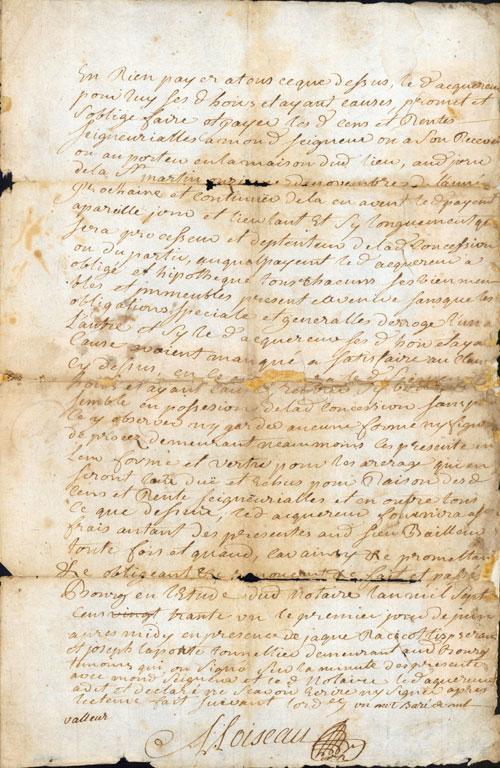 En Rien payer a tous ce que dessus, le d acquereur
pour luy ses d hoirs et ayant causes, promet et
s'oblige faire et payer les d cens et Rentes
seigneurialles a mond seigneur ou a Son Receveur
ou au porteur en la maison dud lieu, aud jour
de la St martin de novembres de
prochaine et continuer de la en avant led payem
a pareille jour et lieu tant Et Sy longuement qe
sera processeur et deptenteur de lad Concession
ou du partir, auquel payent le d acquereur a
oblige et hipothequé tous Chacuns ses biens meu
bles et immeubles present et avenir sans que les
obligations, speciale et generalles derroge l'un a
L'autre et sy le d acquereur ses d hoirs et aya
Cause avoient manqué a satisfaire au Clau
Cy dessus,
hoirs et ayant
semble en possesion de lad Concession sans
le y observer ny garder aucune forme ny figure
de procez demeurant neammoins les presente en
leur forme et vertu pour les arerage qui en
seront lors duë et Echus pour Raison des d
Cens et Rente seigneurialles et en outre tous
Ce que dessus, led acquereur fournira a
frais autant des presentes aud sieur Bailleur
toute fois et quand, Car ainsy &c promettant
&c obligeant &c renoncent &c fait et passé
Bourg en l'Etude dud Notaire l'an mil Sept
Cens vingt trante un le premier jour de juin
apres midy en presence de jaque Racicot tisseran
et joseph laporte tonnellier demeurant aud bourg
timoins qui ont signé sur la minute des presente
avec mond seigneur et le d Notaire led aquereur
a dit et declaré ne scavoir Ecrire ny signer apres
lecteure fait suivant l'ord ce un mot Baré de nul
valleur
A Loiseau